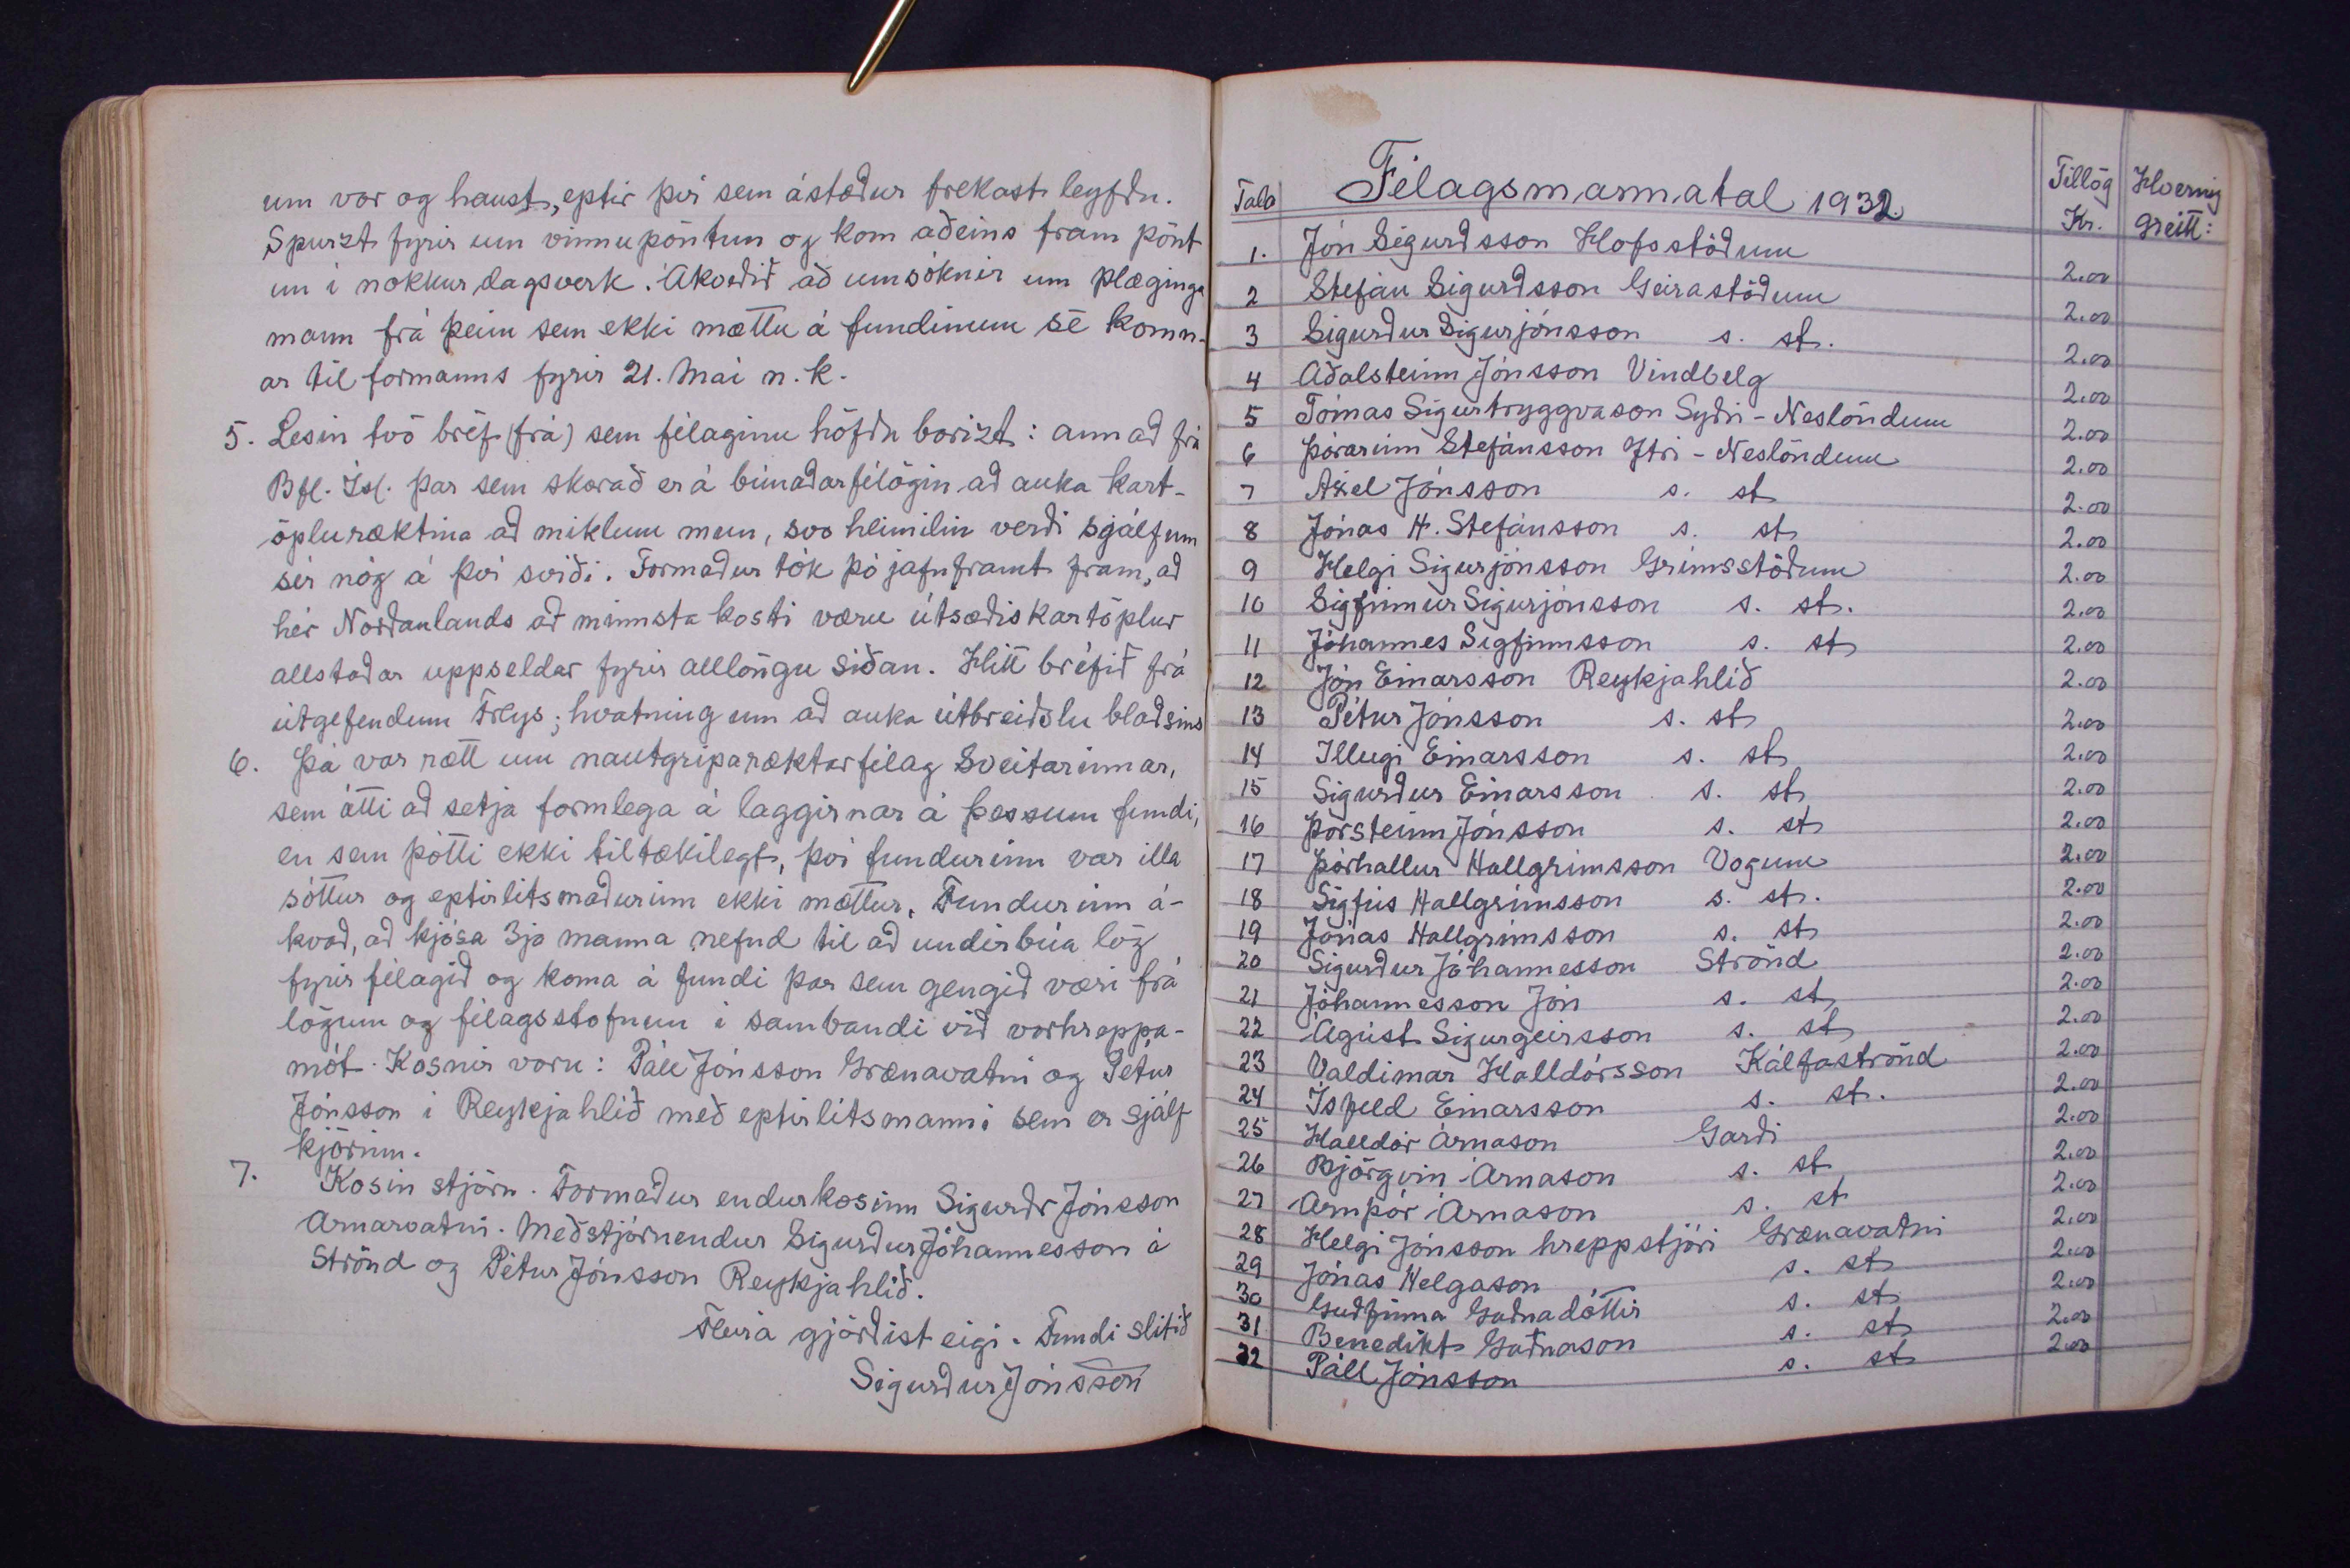 um vor og haust, eptir því sem ástæður frekast leyfðu.
Spurzt fyrir um vinnupöntun og kom aðeins fram pönt
un í nokkur dagsverk. Ákveðið að umsóknir um plæginga
mann frá þeim sem ekki mættu á fundinum sé komn-
ar til formanns fyrir 21. Maí n.k.
5. Lesin tvö bréf (frá) sem félaginu höfðu borizt: annað frá
Bfl. Ísl. þar sem skorað er á búnaðarfélögin að auka kart-
öpluræktina að miklum mun, svo heimilin verði sjálfum
sér nóg á því sviði. Formaður tók þó jafnframt fram, að
hér Norðanlands að minnsta kosti væru útsæðiskartöplur
allstaðar uppseldar fyrir alllöngu síðan. Hitt bréfið frá
útgefendum Freys; hvatning um að auka útbreiðslu blaðsins
6. Þá var rætt um nautgriparæktarfélag Sveitarinnar,
sem átti að setja formlega á laggirnar á þessum fundi,
en sem þótti ekki tiltækilegt, því fundurinn var illa
sóttur og eptirlitsmaðurinn ekki mættur. Fundurinn á-
kvað, að kjósa 3ja manna nefnd til að undirbúa lög
fyrir félagið og koma á fundi þar sem gengið væri frá
lögum og félagsstofnun í sambandi við vorhreppa-
mót. Kosnir voru: Páll Jónsson Grænavatni og Pétur
Jónsson í Reykjahlíð með eptirlitsmanni sem er sjálf
kjörinn.
7. Kosin stjórn. Formaður endurkosinn Sigurðr Jónsson
Arnarvatni. Meðstjórnendur Sigurður Jóhannesson á
Strönd og Pétur Jónsson Reykjahlíð.
Fleira gjörðist eigi. Fundi slitið
Sigurður Jónsson
Tala Félagsmannatal 1932. Tillög Kr. Hvernig greitt:
1. Jón Sigurðsson Hofsstöðum 2.00
2 Stefán Sigurðsson Geirastöðum 2.00
3 Sigurður Sigurjónsson s. st. 2.00
4 Aðalsteinn Jónsson Vindbelg 2.00
5 Tómas Sigurtryggvason Syðri-Neslöndum 2.00
6 Þórarinn Stefánsson Ytri-Neslöndum 2.00
7 Axel Jónsson s. st 2.00
8 Jónas H. Stefánsson s. st 2.00
9 Helgi Sigurjónsson Grímsstöðum 2.00
10 Sigfinnur Sigurjónsson s. st. 2.00
11 Jóhannes Sigfinnsson s. st 2.00
12 Jón Einarsson Reykjahlíð 2.00
13 Pétur Jónsson s. st 2.00
14 Illugi Einarsson s. st 2.00
15 Sigurður Einarsson s. st 2.00
16 Þorsteinn Jónsson s. st 2.00
17 Þórhallur Hallgrímsson Vogum 2.00
18 Sigfús Hallgrímsson s. st. 2.00
19 Jónas Hallgrímsson s. st 2.00
20 Sigurður Jóhannesson Strönd 2.00
21 Jóhannesson Jón s. st 2.00
22 Ágúst Sigurgeirsson s. st 2.00
23 Valdimar Halldórsson Kálfaströnd 2.00
24 Ísfeld Einarsson s. st. 2.00
25 Halldór Árnason Garði 2.00
26 Björgvin Árnason s. st 2.00
27 Arnþór Árnason s. st 2.00
28 Helgi Jónsson hreppstjóri Grænavatni 2.00
29 Jónas Helgason s. st 2.00
30 Guðfinna Guðnadóttir s. st 2.00
31 Benedikt Guðnason s. st 2.00
32 Páll Jónsson s. st 2.00